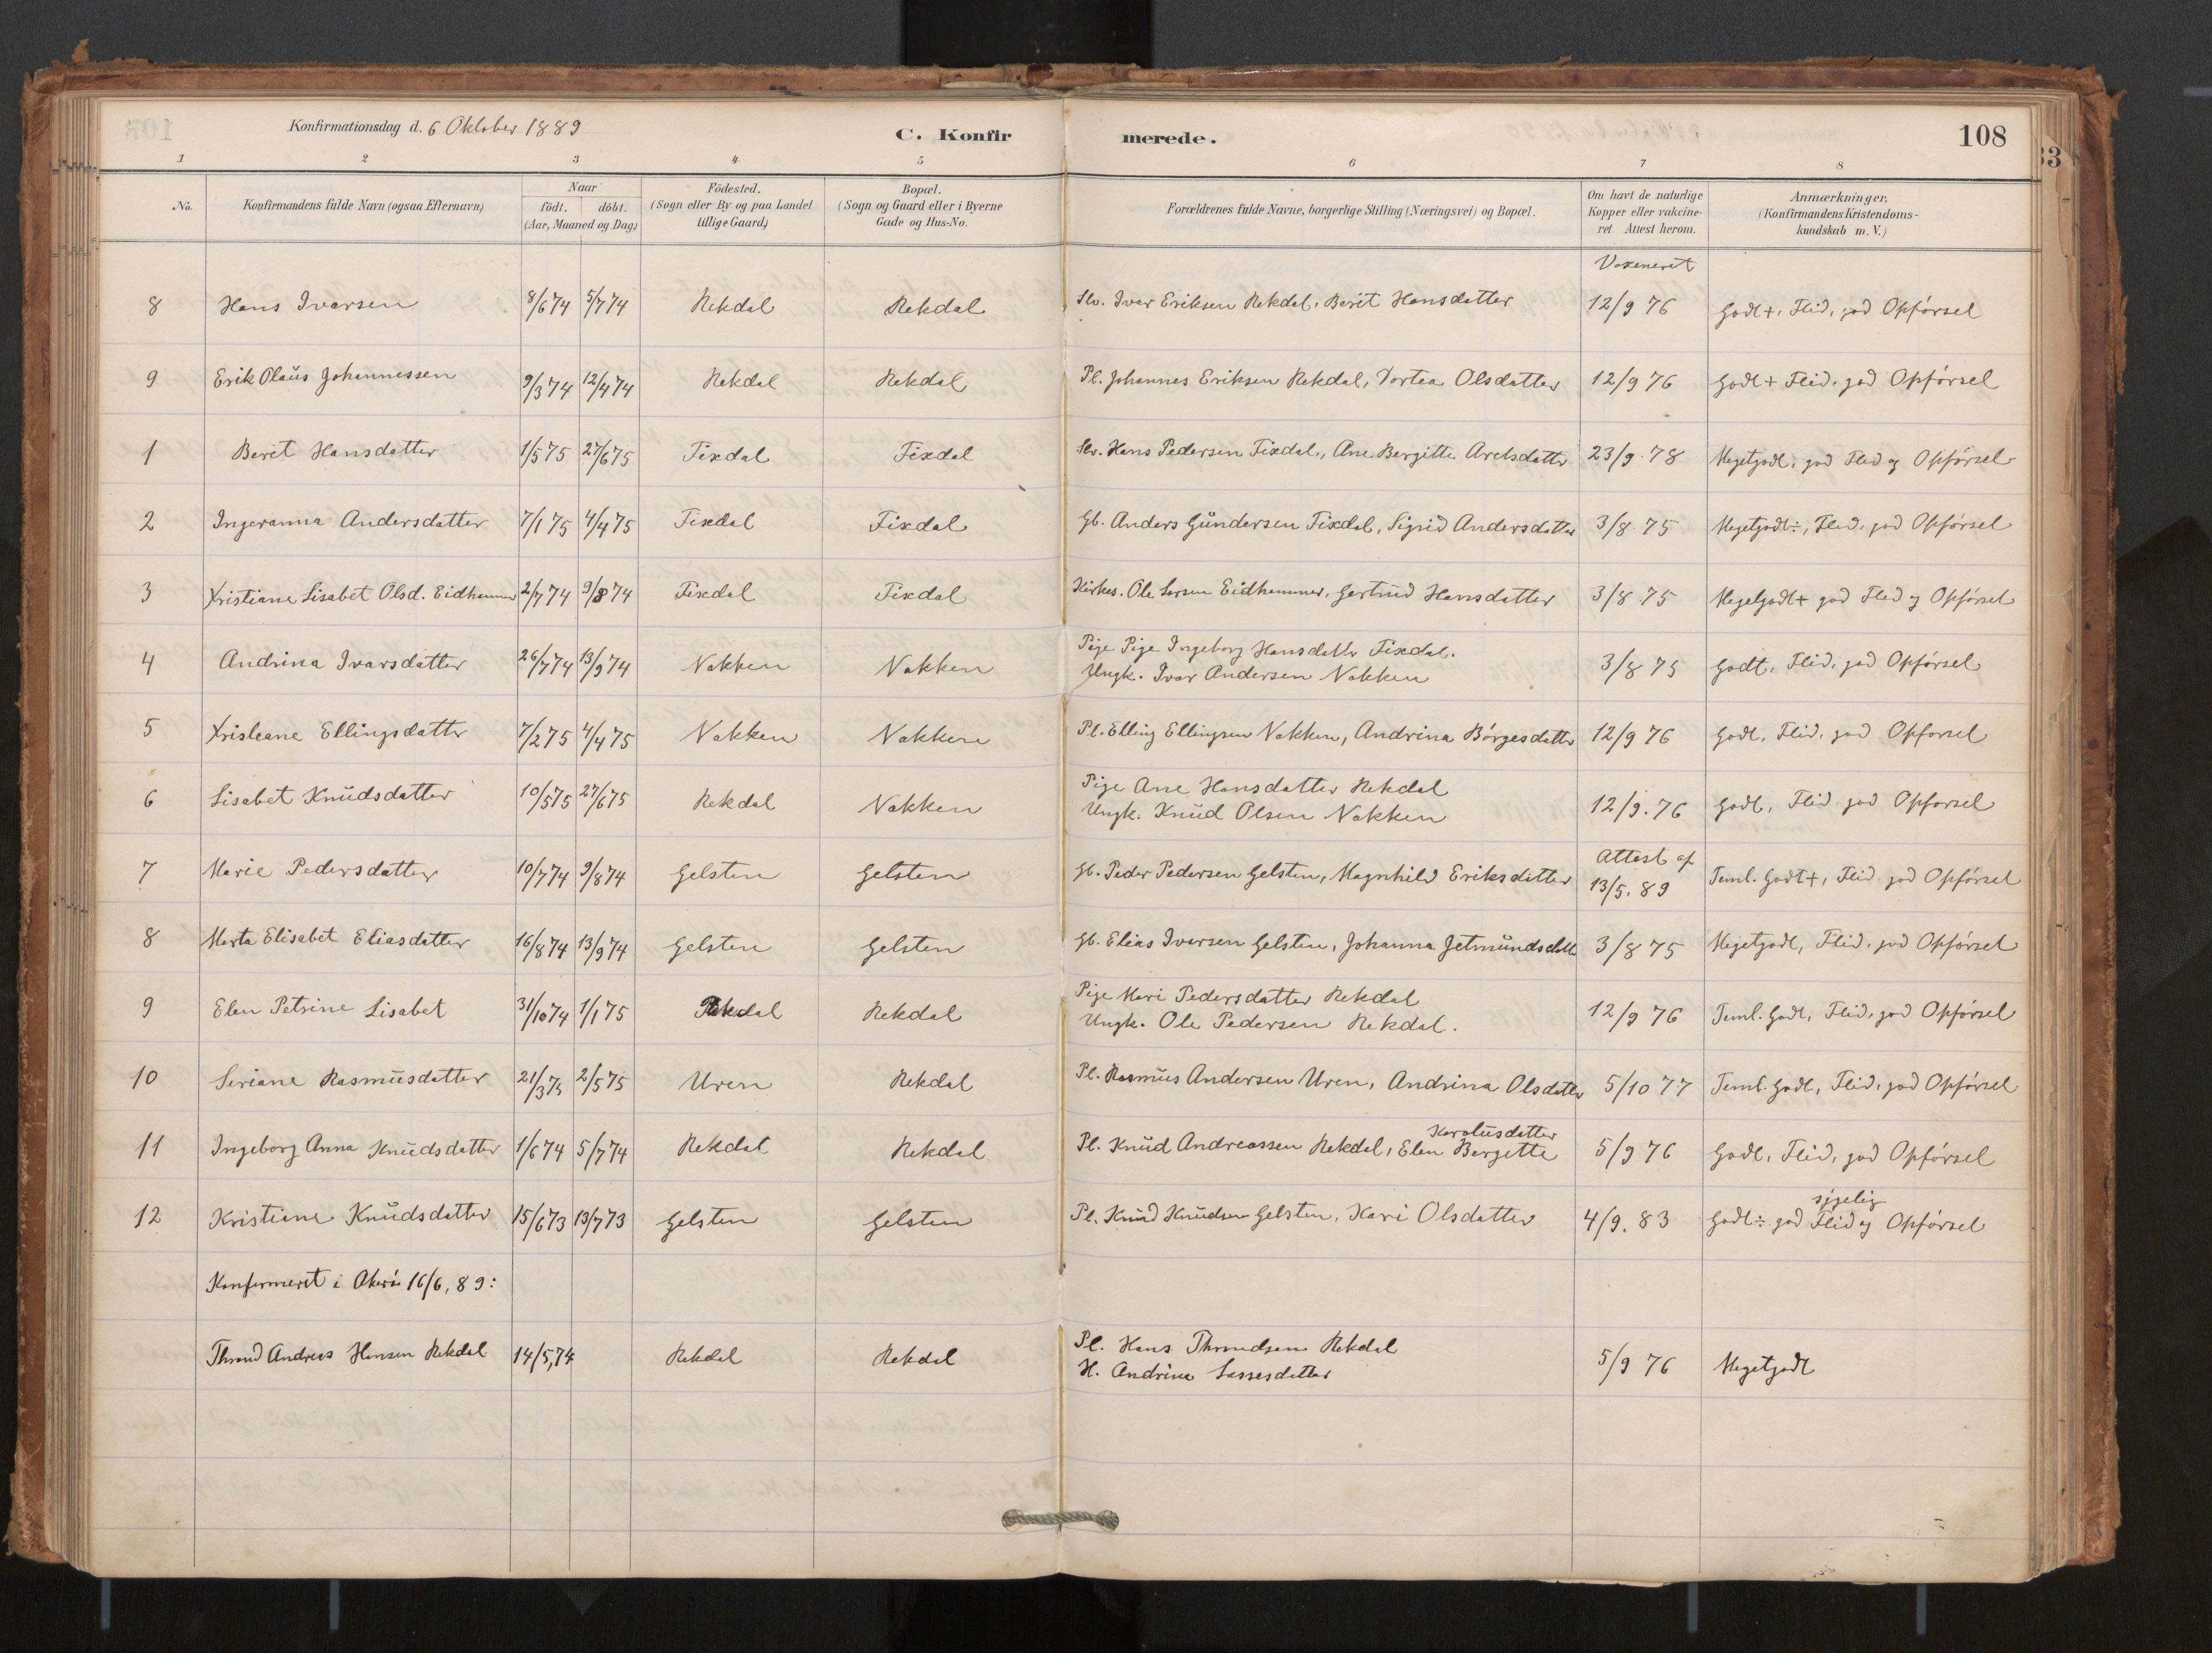 Konfirmationsdag d. 6 Oktober 1889
C. Konfir merede. 108
33
1 2 3 4 5 6 7 8
No. Konfirmandens fulde Navn (ogsaa Efternavn) Naar født. døbt. (Aar, Maaned og Dag) Födested. (Sogn eller By og paa Landet tillige Gaard) Bopæl. (Sogn og Gaard eller i Byerne Gade og Hus-No. Forældrenes fulde Navne, borgerlige Stilling (Næringsvei) og Bopæl. Om havt de naturlige Kopper eller vakcineret Attest herom. Anmærkninger, (Konfirmandens Kristendomskundskab m. V.)
Vaxineret
8 Hans Ivarsen 8/6 74 5/7 74 Rekdal Rekdal Slv. Ivar Eriksen Rekdal, Berit Hansdatter 12/9 76 Godt+, Flid, god Opførsel
9 Erik Olaüs Johannessen 9/3 74 12/4 74 Rekdal Rekdal Pl. Johannes Eriksen Rekdal, Dortea Olsdatter 12/9 76 Godt+ Flid, god Opførsel
1 Berit Hansdatter 1/5 75 27/6 75 Fixdal Fixdal Slv. Hans Pedersen Fixdal, Ane Bergitte Areldsdatter 23/9 78 Megetgodt, god Flid og Opførsel
2 Ingeranna Andersdatter 7/1 75 4/4 75 Fixdal Fixdal Gb. Anders Gündersen Fixdal, Sigrid Andersdatter 3/8 75 Megetgodt÷, Flid, god Opførsel
3 Xristiane Lisabet Olsd. Eidhammer 2/7 74 9/8 74 Fixdal Fixdal Kirkes. Ole Larsen Eidhammer, Gertrüd Hansdatter 3/8 75 Megetgodt+ god Flid og Opførsel
4 Andrina Ivarsdatter 26/7 74 13/9 74 Nakken Nakken Pige Pige Ingeborg Hansdatter Fixdal.
Ungk. Ivar Andersen Nakken 3/8 75 Godt, Flid, god Opførsel
5 Xristiane Ellingsdatter 7/2 75 4/4 75 Nakken Nakken Pl. Elling Ellingsen Nakken, Andrina Børgesdatter 12/9 76 Godt, Flid, god Opførsel
6 Lisabet Knüdsdatter 10/5 75 27/6 75 Rekdal Nakken Pige Ane Hansdatter Rekdal
Ungk. Knüd Olsen Nakken 12/9. 76 Godt, Flid god Opførsel
7 Marie Pedersdatter 10/7 74 9/8 74 Gelsten Gelsten Gb. Peder Pedersen Gelsten, Magnhild Eriksdatter Attest af 13/5. 89 Teml. Godt+, Flid god Opførsel
8 Marta Elisabet Eliasdatter 16/8 74 13/9 74 Gelsten Gelsten Gb. Elias Iversen Gelsten, Johanna Jetmündsdatter 3/8 75 Megetgodt, Flid, god Opførsel
9 Elen Petrine Lisabet 31/10 74 1/1 75 Rekdal Rekdal Pige Mari Pedersdatter Rekdal
Ungk. Ole Pedersen Rekdal. 12/9 76 Teml. Godt, Flid, god Opførsel
10 Seriane Rasmüsdatter 21/3 75 2/5 75 Uren Rekdal Pl. Rasmüs Andersen Uren, Andrina Olsdatter 5/10 77 Teml. Godt, Flid, god Opførsel
11 Ingeborg Anna Knüdsdatter 1/6 74 5/7 74 Rekdal Rekdal Pl. Knüd Andreassen Rekdal, Elen Bergette Karolüsdatter 5/9 76 Godt, Flid, god Opførsel
12 Kristiane Knüdsdatter 15/6 73 13/7 73 Gelsten Gelsten Pl. Knüd Knüdsen Gelsten, Kari Olsdatter 4/9. 83 Godt÷ god Flid og Opførsel
Konfirmeret i Akerø 16/6, 89:
Thrond Andreas Hansen Rekdal 14/5,74 Rekdal Rekdal Pl. Hans Throndsen Rekdal
H. Andrine Lassesdatter 5/9 76 Megetgodt